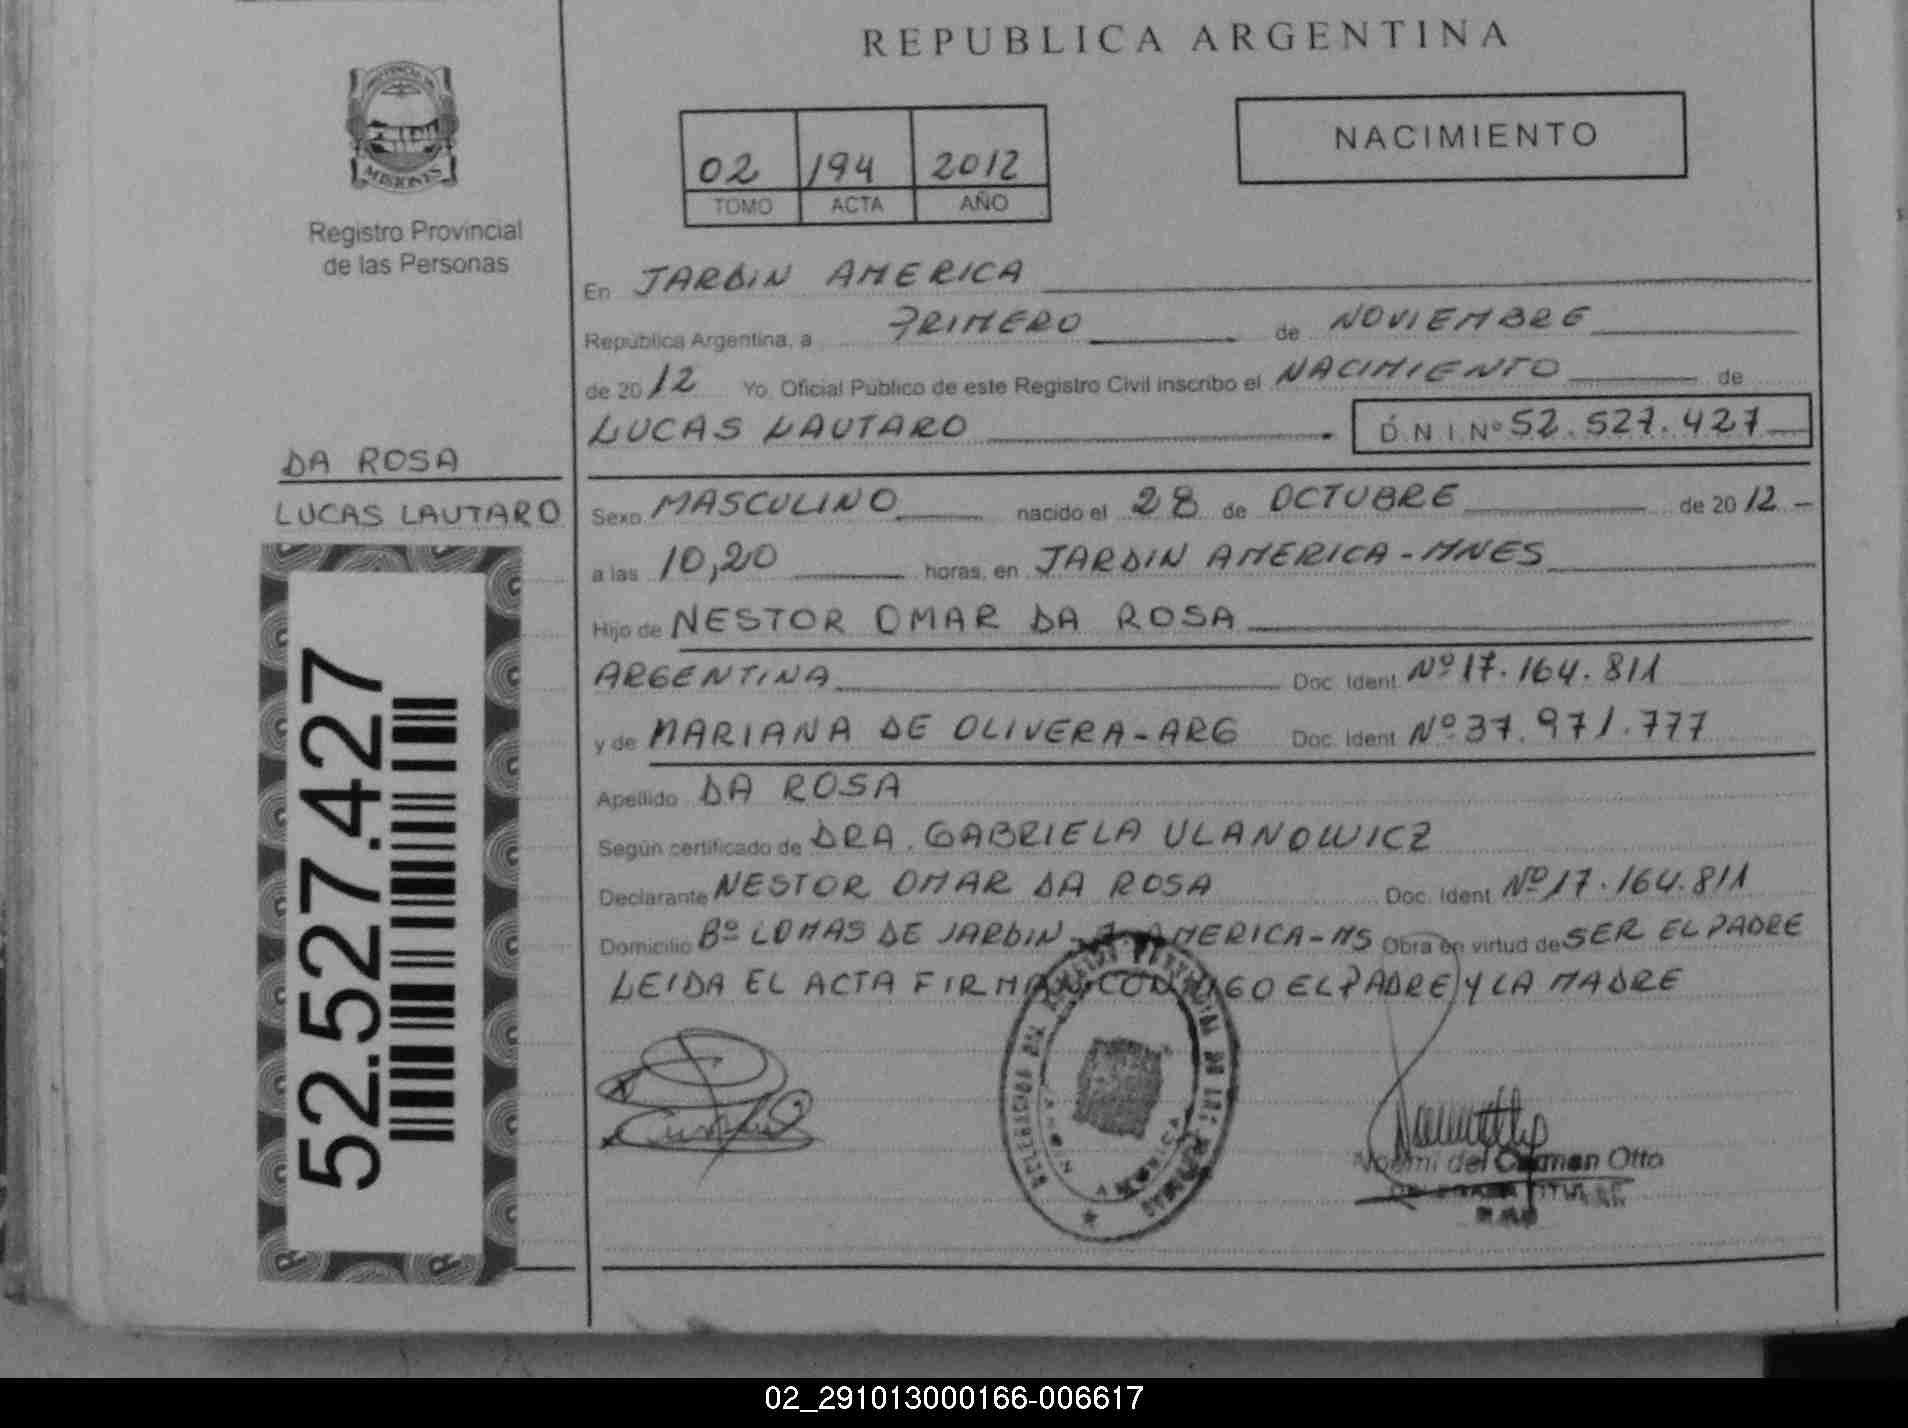 REPUBLICA ARGENTINA
PROVINCIA DE
MISIONES
Registro Provincial
de las Personas
02 194 2012
TOMO ACTA AÑO
NACIMIENTO
En JARDIN AMERICA
República Argentina, a PRIMERO de NOVIEMBRE
de 2012 Yo, Oficial Público de este Registro Civil inscribo el NACIMIENTO de
LUCAS LAUTARO D N I Nº 52.527.427
DA ROSA
LUCAS LAUTARO
52.527.427
Sexo MASCULINO nacido el 28 de OCTUBRE de 2012
a las 10,20 horas, en JARDIN AMERICA-MNES
Hijo de NESTOR OMAR DA ROSA
ARGENTINA Doc. Ident. Nº 17.164.811
y de MARIANA DE OLIVERA-ARG Doc. Ident. Nº 37.971.777
Apellido DA ROSA
Según certificado de DRA. GABRIELA ULANOWICZ
Declarante NESTOR OMAR DA ROSA Doc. Ident. Nº 17.164.811
Domicilio Bº LOMAS DE JARDIN-J. AMERICA-MS Obra en virtud de SER EL PADRE
LEIDA EL ACTA FIRMAN CONMIGO EL PADRE Y LA MADRE
JARDIN AMERICA
Noemi del Carmen Otto
02_291013000166-006617